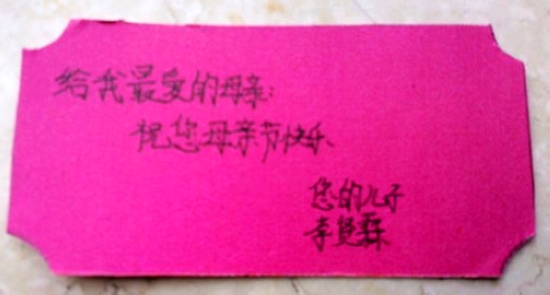 给我最爱的母亲：
祝您母亲节快乐、
您的儿子
李昱霖